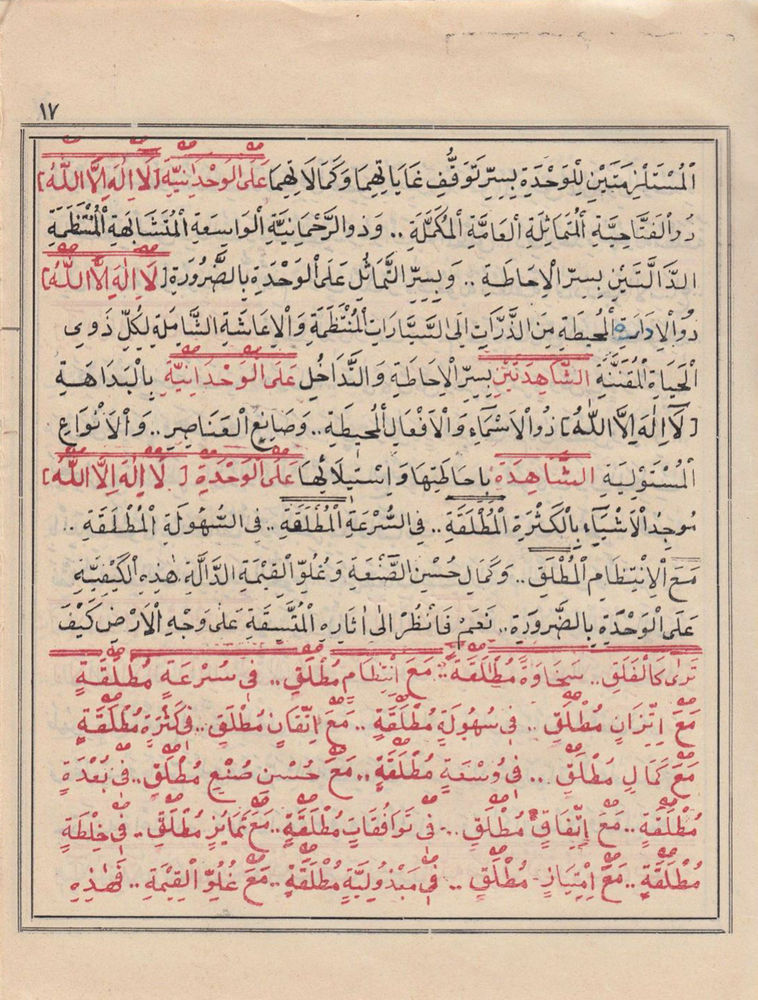 ١٧
اَلْمُسْتَلْزِمَتَيْنِ لِلْوَحْدَةِ بِسِرِّ تَوَقُّفِ غَايَاتِهِمَا وَكَمَالَاتِهِمَا عَلَى الْوَحْدَانِيَّةِ [لَا اِلٰهَ اِلَّا اللّٰهُ]
ذُو الْفَتَّاحِيَّةِ الْمُتَمَاثِلَةِ الْعَامَّةِ الْمُكَمَّلَةِ .. وَذُو الرَّحْمَانِيَّةِ الْوَاسِعَةِ الْمُتَشَابِهَةِ الْمُنْتَظَمَةِ
الدَّالَّتَيْنِ بِسِرِّ الْاِحَاطَةِ .. وَبِسِرِّ التَّمَاثُلِ عَلَى الْوَحْدَةِ بِالضَّرُورَةِ [لَا اِلٰهَ اِلَّا اللّٰهُ]
ذُو الْاِدَارَةِ الْمُحِيطَةِ مِنَ الذَّرَّاتِ اِلَى السَّيَّارَاتِ الْمُنْتَظَمَةِ وَالْاِعَاشَةِ الشَّامِلَةِ لِكُلِّ ذَوِى
الْحَيَاةِ الْمُقَنَّنَةِ الشَّاهِدَتَيْنِ بِسِرِّ الْاِحَاطَةِ وَالتَّدَاخُلِ عَلَى الْوَحْدَانِيَّةِ بِالْبَدَاهَةِ
[لَا اِلٰهَ اِلَّا اللّٰهُ] ذُو الْاَسْمَاءِ وَالْاَفْعَالِ الْمُحِيطَةِ .. وَصَانِعُ الْعَنَاصِرِ .. وَالْاَنْوَاعِ
الْمُسْتَوْلِيَةِ الشَّاهِدَةِ بِاِحَاطَتِهَا وَاِسْتِيلَائِهَا عَلَى الْوَحْدَةِ [لَا اِلٰهَ اِلَّا اللّٰهُ]
مُوجِدُ الْاَشْيَاءِ بِالْكَثْرَةِ الْمُطْلَقَةِ .. فِى السُّرْعَةِ الْمُطْلَقَةِ .. فِى السُّهُولَةِ الْمُطْلَقَةِ ..
مَعَ الْاِنْتِظَامِ الْمُطْلَقِ .. وَكَمَالِ حُسْنِ الصَّنْعَةِ وَغُلُوِّ الْقِيْمَةِ الدَّالَّةِ هٰذِهِ الْكَيْفِيَّةِ
عَلَى الْوَحْدَةِ بِالضَّرُورَةِ .. نَعَمْ فَانْظُرْ اِلٰى اٰثَارِهِ الْمُتَّسِقَةِ عَلٰى وَجْهِ الْاَرْضِ كَيْفَ
تَرٰى كَالْفَلَقِ .. سَخَاوَةً مُطْلَقَةً .. مَعَ اِنْتِظَامٍ مُطْلَقٍ .. فِى سُرْعَةٍ مُطْلَقَةٍ
مَعَ اِتِّزَانٍ مُطْلَقٍ .. فِى سُهُولَةٍ مُطْلَقَةٍ .. مَعَ اِتْقَانٍ مُطْلَقٍ .. فِى كَثْرَةٍ مُطْلَقَةٍ
مَعَ كَمَالٍ مُطْلَقٍ .. فِى وُسْعَةٍ مُطْلَقَةٍ .. مَعَ حُسْنِ صُنْعٍ مُطْلَقٍ .. فِى بُعْدَةٍ
مُطْلَقَةٍ .. مَعَ اِتِّفَاقٍ مُطْلَقٍ .. فِى تَوَافُقَاتٍ مُطْلَقَةٍ .. مَعَ تَمَايُزٍ مُطْلَقٍ .. فِى خِلْطَةٍ
مُطْلَقَةٍ .. مَعَ اِمْتِيَازٍ مُطْلَقٍ .. فِى مَبْذُولِيَّةٍ مُطْلَقَةٍ .. مَعَ غُلُوِّ الْقِيْمَةِ .. فَهٰذِهِ